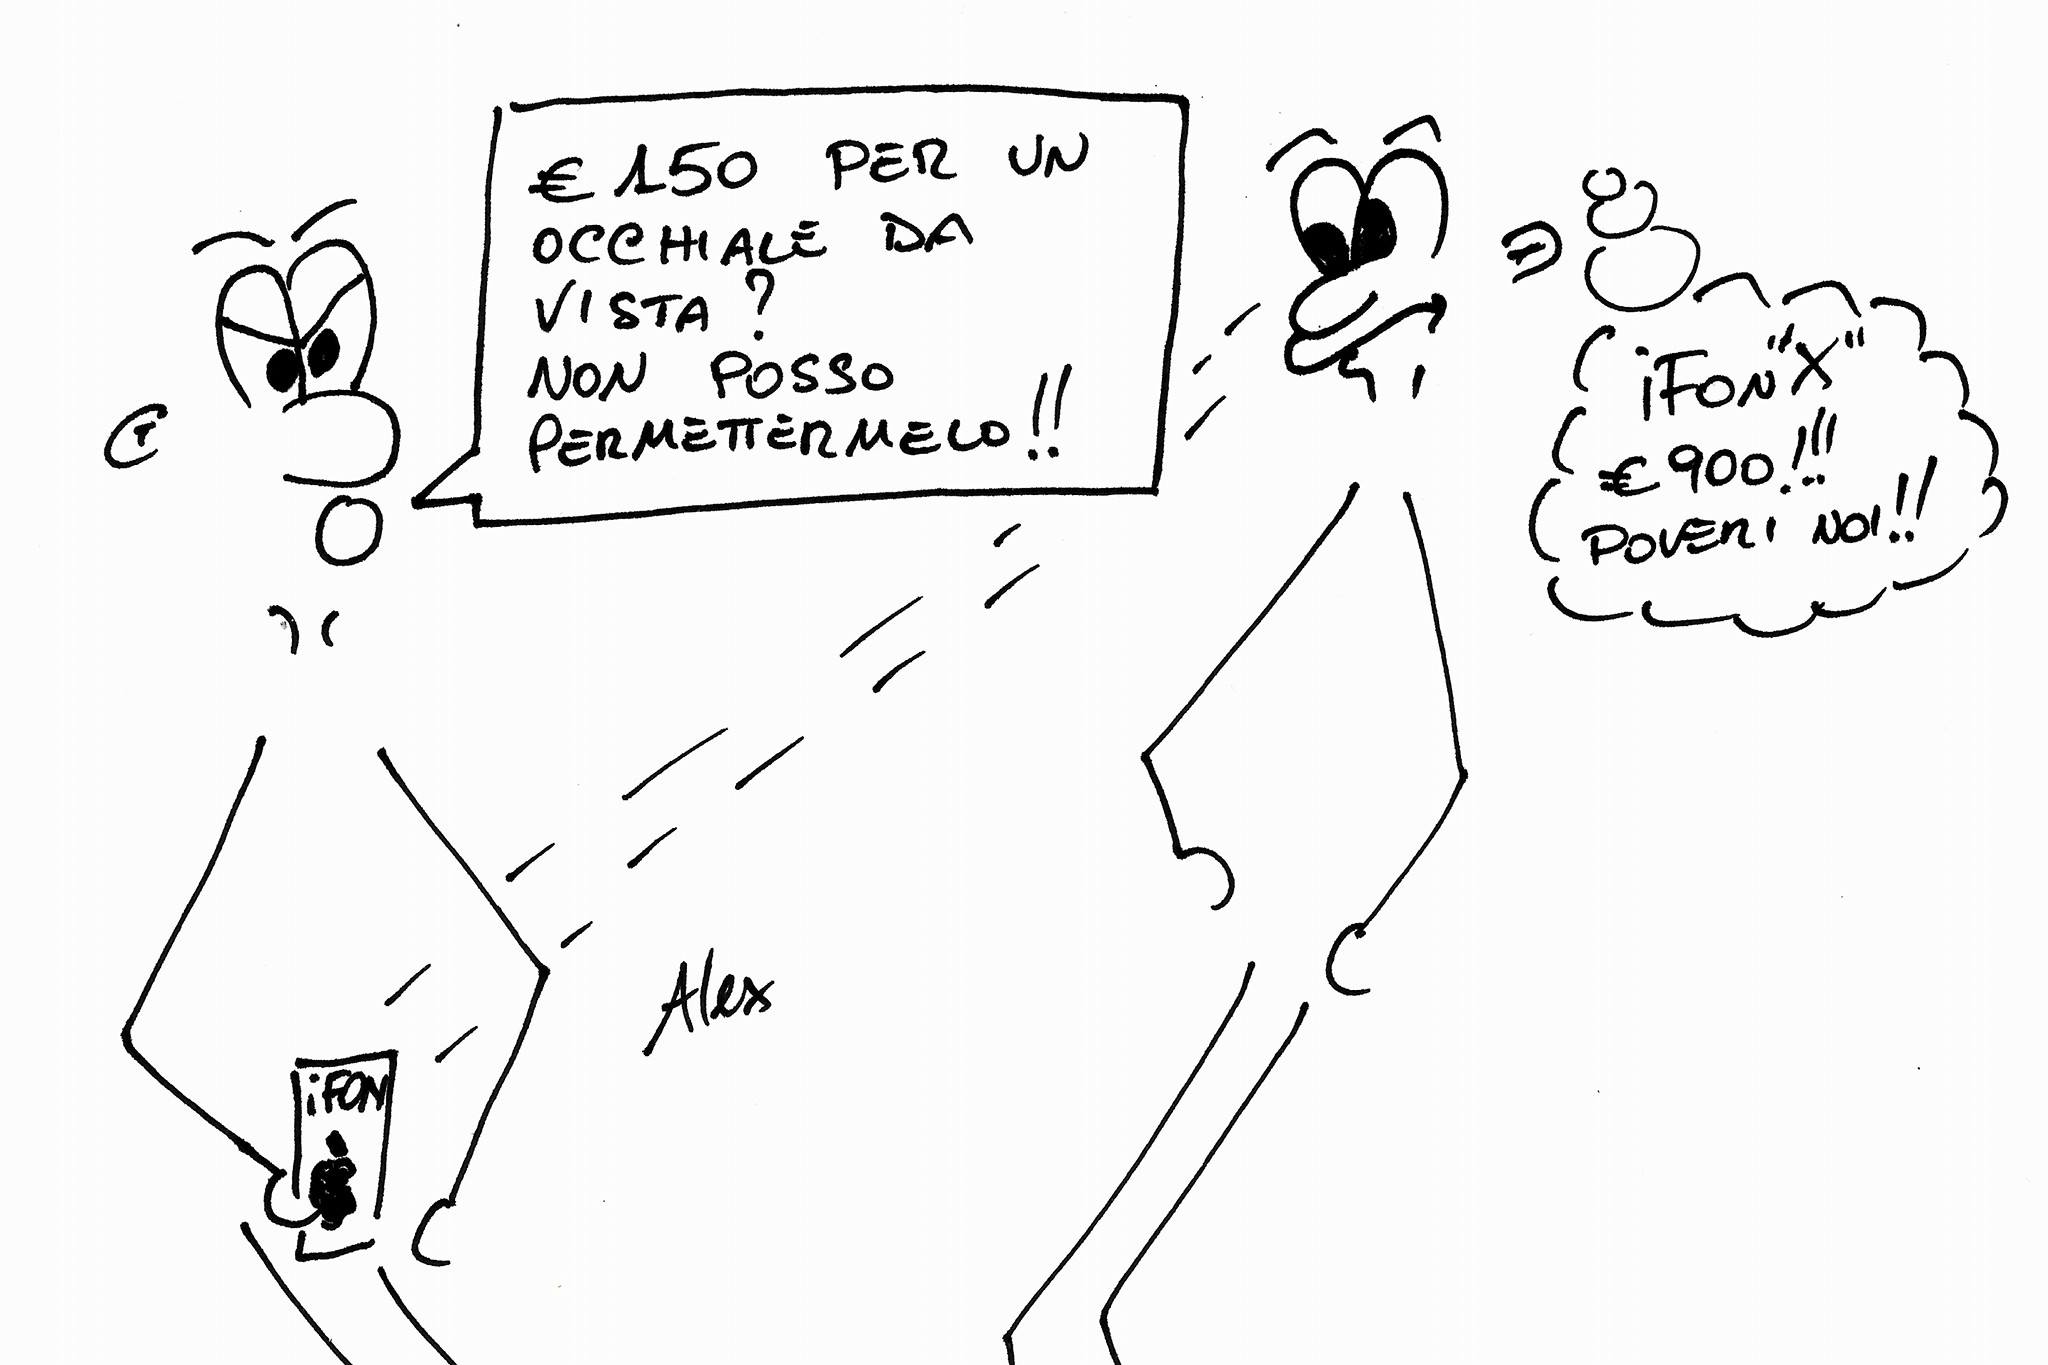 € 150 PER UN
OCCHIALE DA
VISTA?
NON POSSO
PERMETTERMELO!!
iFON"X"
€ 900!!!!
POVERI NOI!!
Alex
iFON